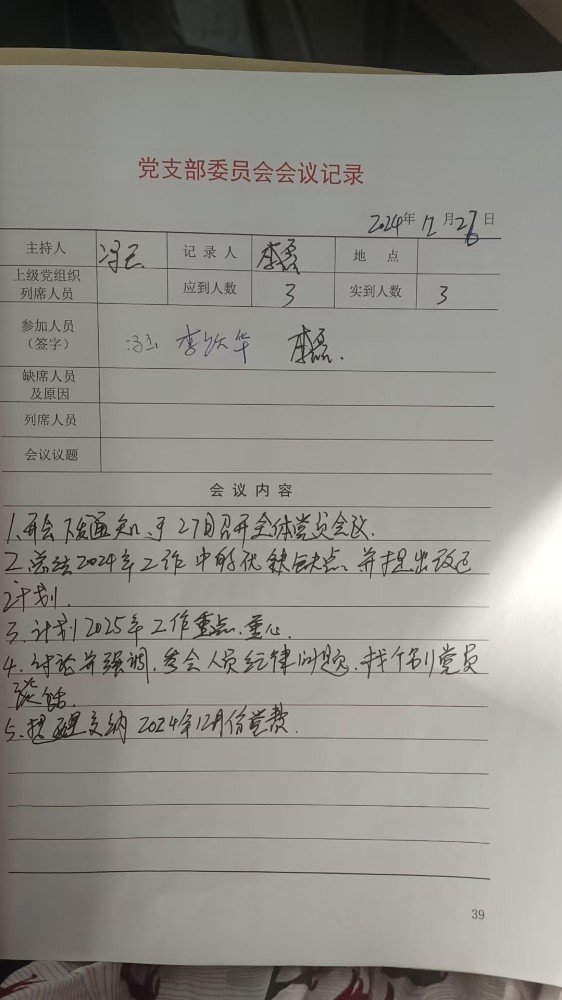 党支部委员会会议记录
2024年12月26日
主持人 冯玉 记录人 李磊 地点
上级党组织列席人员 应到人数 3 实到人数 3
参加人员（签字） 冯玉 李 华 李磊.
缺席人员及原因
列席人员
会议议题
会议内容
1.开会下发通知、于27日召开全体党员会议.
2.总结2024年工作中的优缺点、并提出改进
计划.
3.计划2025年工作重点、重心.
4.讨论并强调、参会人员纪律问题、找个别党员
谈话.
5.提醒交纳2024年12月份党费.
39